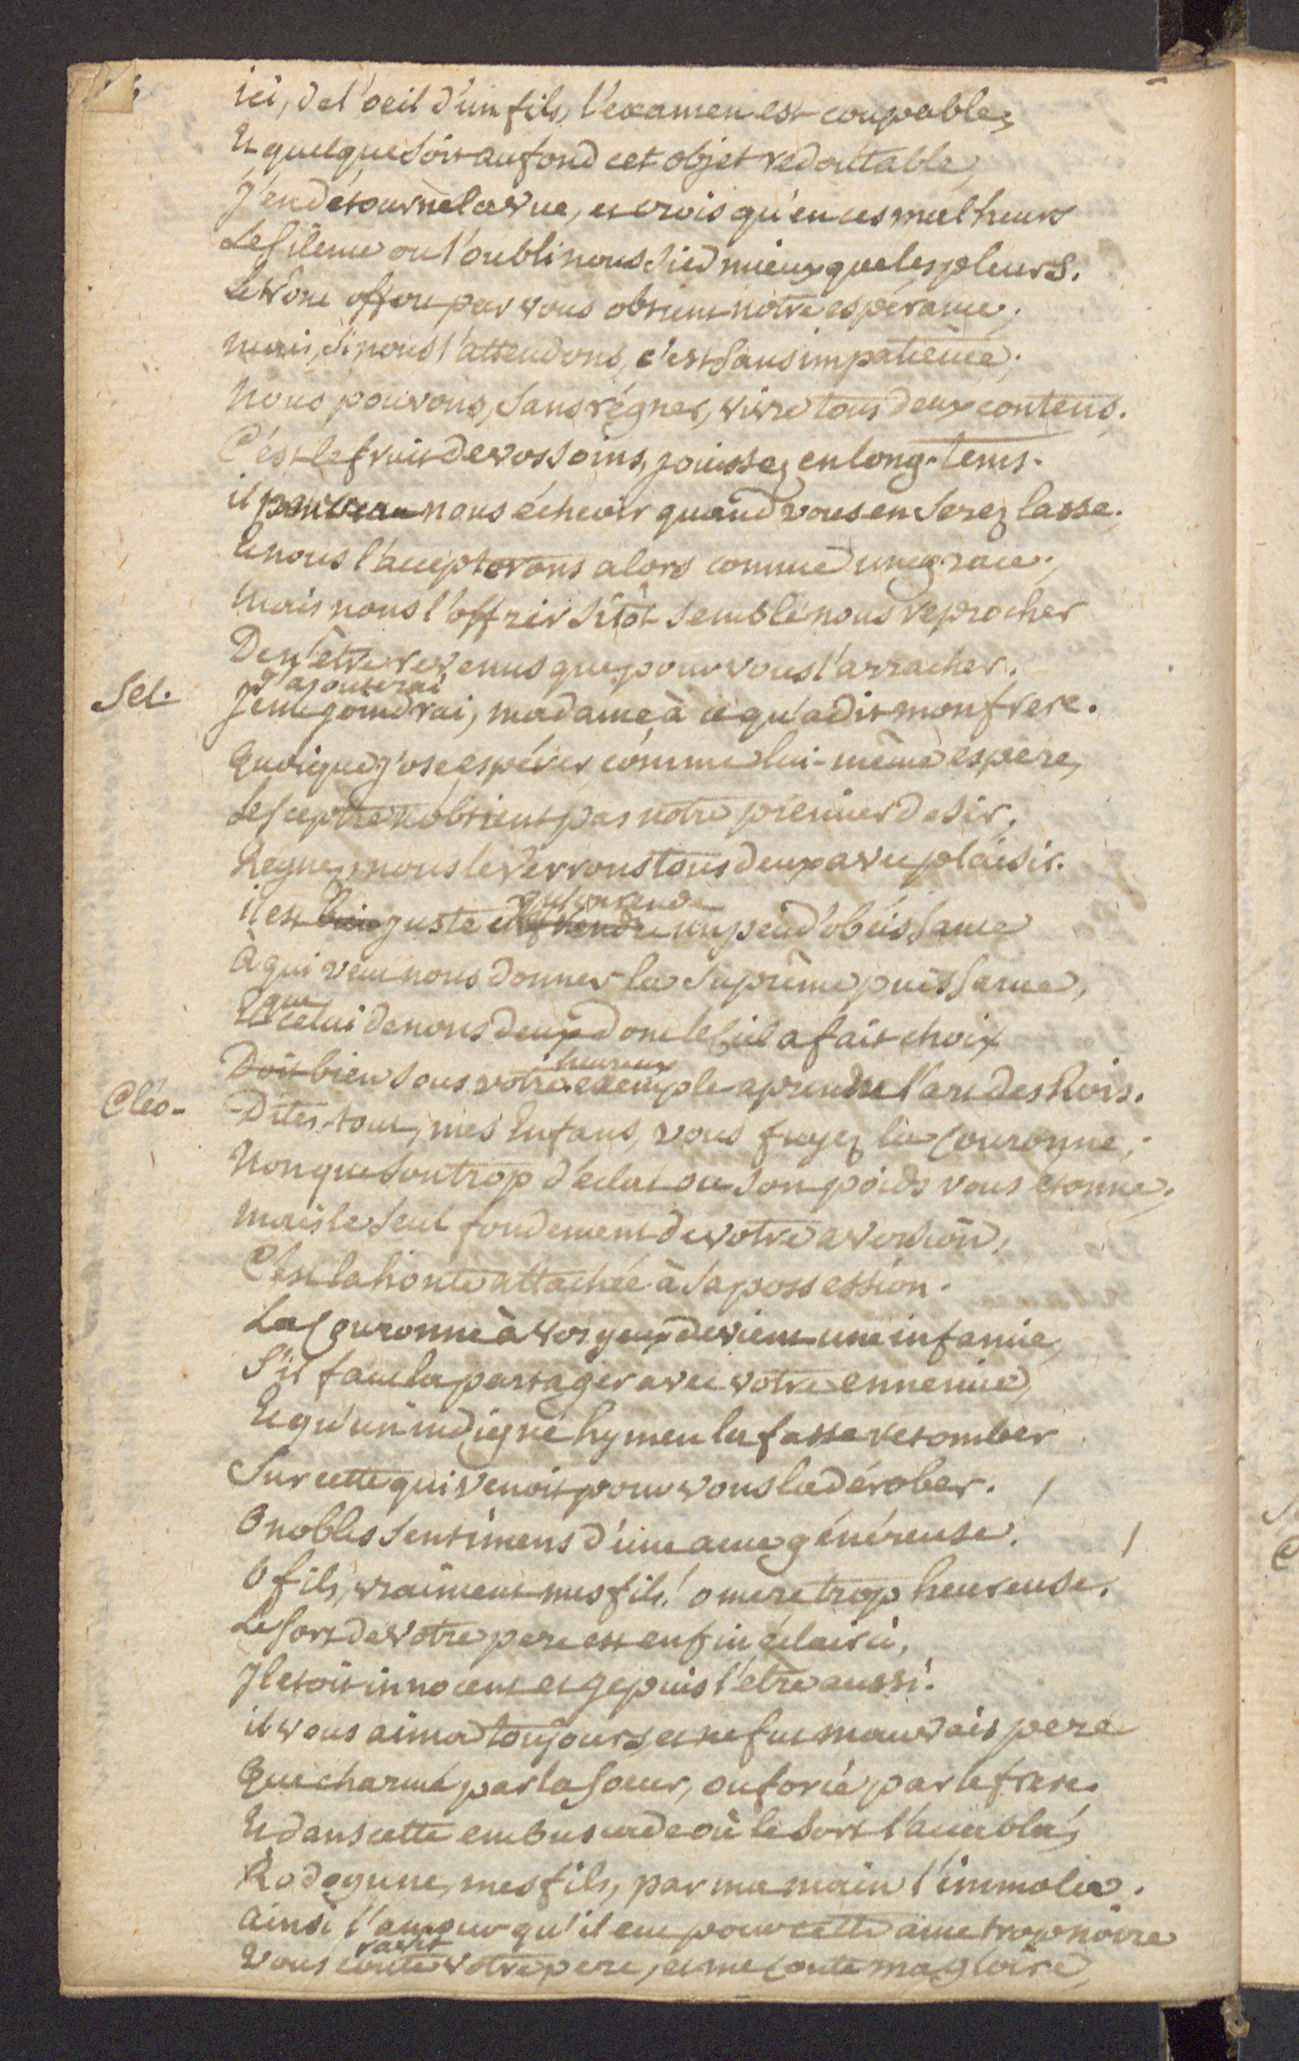 ici, de l'oeil d'un fils, l'examen est coupable;
Et quelque soit au fond cet objet redoutable,
J'en détourne la vue, et crois qu'en ces malheurs
Le silence ou l'oubli nous sied mieux que les pleurs.
Le trône offert par vous obtient notre espérance;
mais, si nous l'attendons, c'est sans impatience.
Nous pouvons, sans régner, vivre tous deux contens.
C'est le fruit de vos soins, jouissez en long-tems.
il pourra nous échevir quand vous en serez lasse.
Et nous l'accepterons alors comme une grace;
Mais nous l'offrir sitôt semble nous reprocher
De n'être revenus que pour vous l'arracher.
j'ajouterai
Sel. Je me joindrai, madame à ce qu'a dit mon frere.
Quoique j'ose espérer comme lui-même espere,
Le sceptre n'obtient pas notre premier desir.
Regnez, nous le verrons tous deux avec plaisir.
qu'on rende
il est bien juste un peu d'obéissance
A qui veut nous donner la suprême puissance,
que
Et celui de nous deux dont le Ciel a fait choix
heureux
Doit bien sous votre exemple aprendre l'art des Rois.
Cléo- -Dites tout, mes Enfans, vous fuyez la Couronne;
Non que son trop d'éclat ou son poids vous étonne,
mais le seul fondement de votre aversion,
C'est la honte attachée à sa possession.
La Couronne à vos yeux devient une infamie,
S'il faut la partager avec votre ennemie,
Et qu'un indigne hymen la fasse retomber
Sur cette qui venoit pour vous la dérober.
O nobles sentimens d'une ame généreuse!
O fils, vraiment mes fils! o mere trop heureuse!
Le sort de votre pere est enfin éclairci,
Il etoit innocent et je puis l'etre aussi.
il vous aima toujours et ne fut mauvais pere
Que charmé par la soeur, ou forcé par le frere.
Et dans cette embuscade où le sort l'accabla,
Rodogune, mes fils, par ma main l'immola.
ainsi l'amour qu'il eut pour cette ame trop noire
ravit
Vous coute votre pere, et me coute ma gloire,